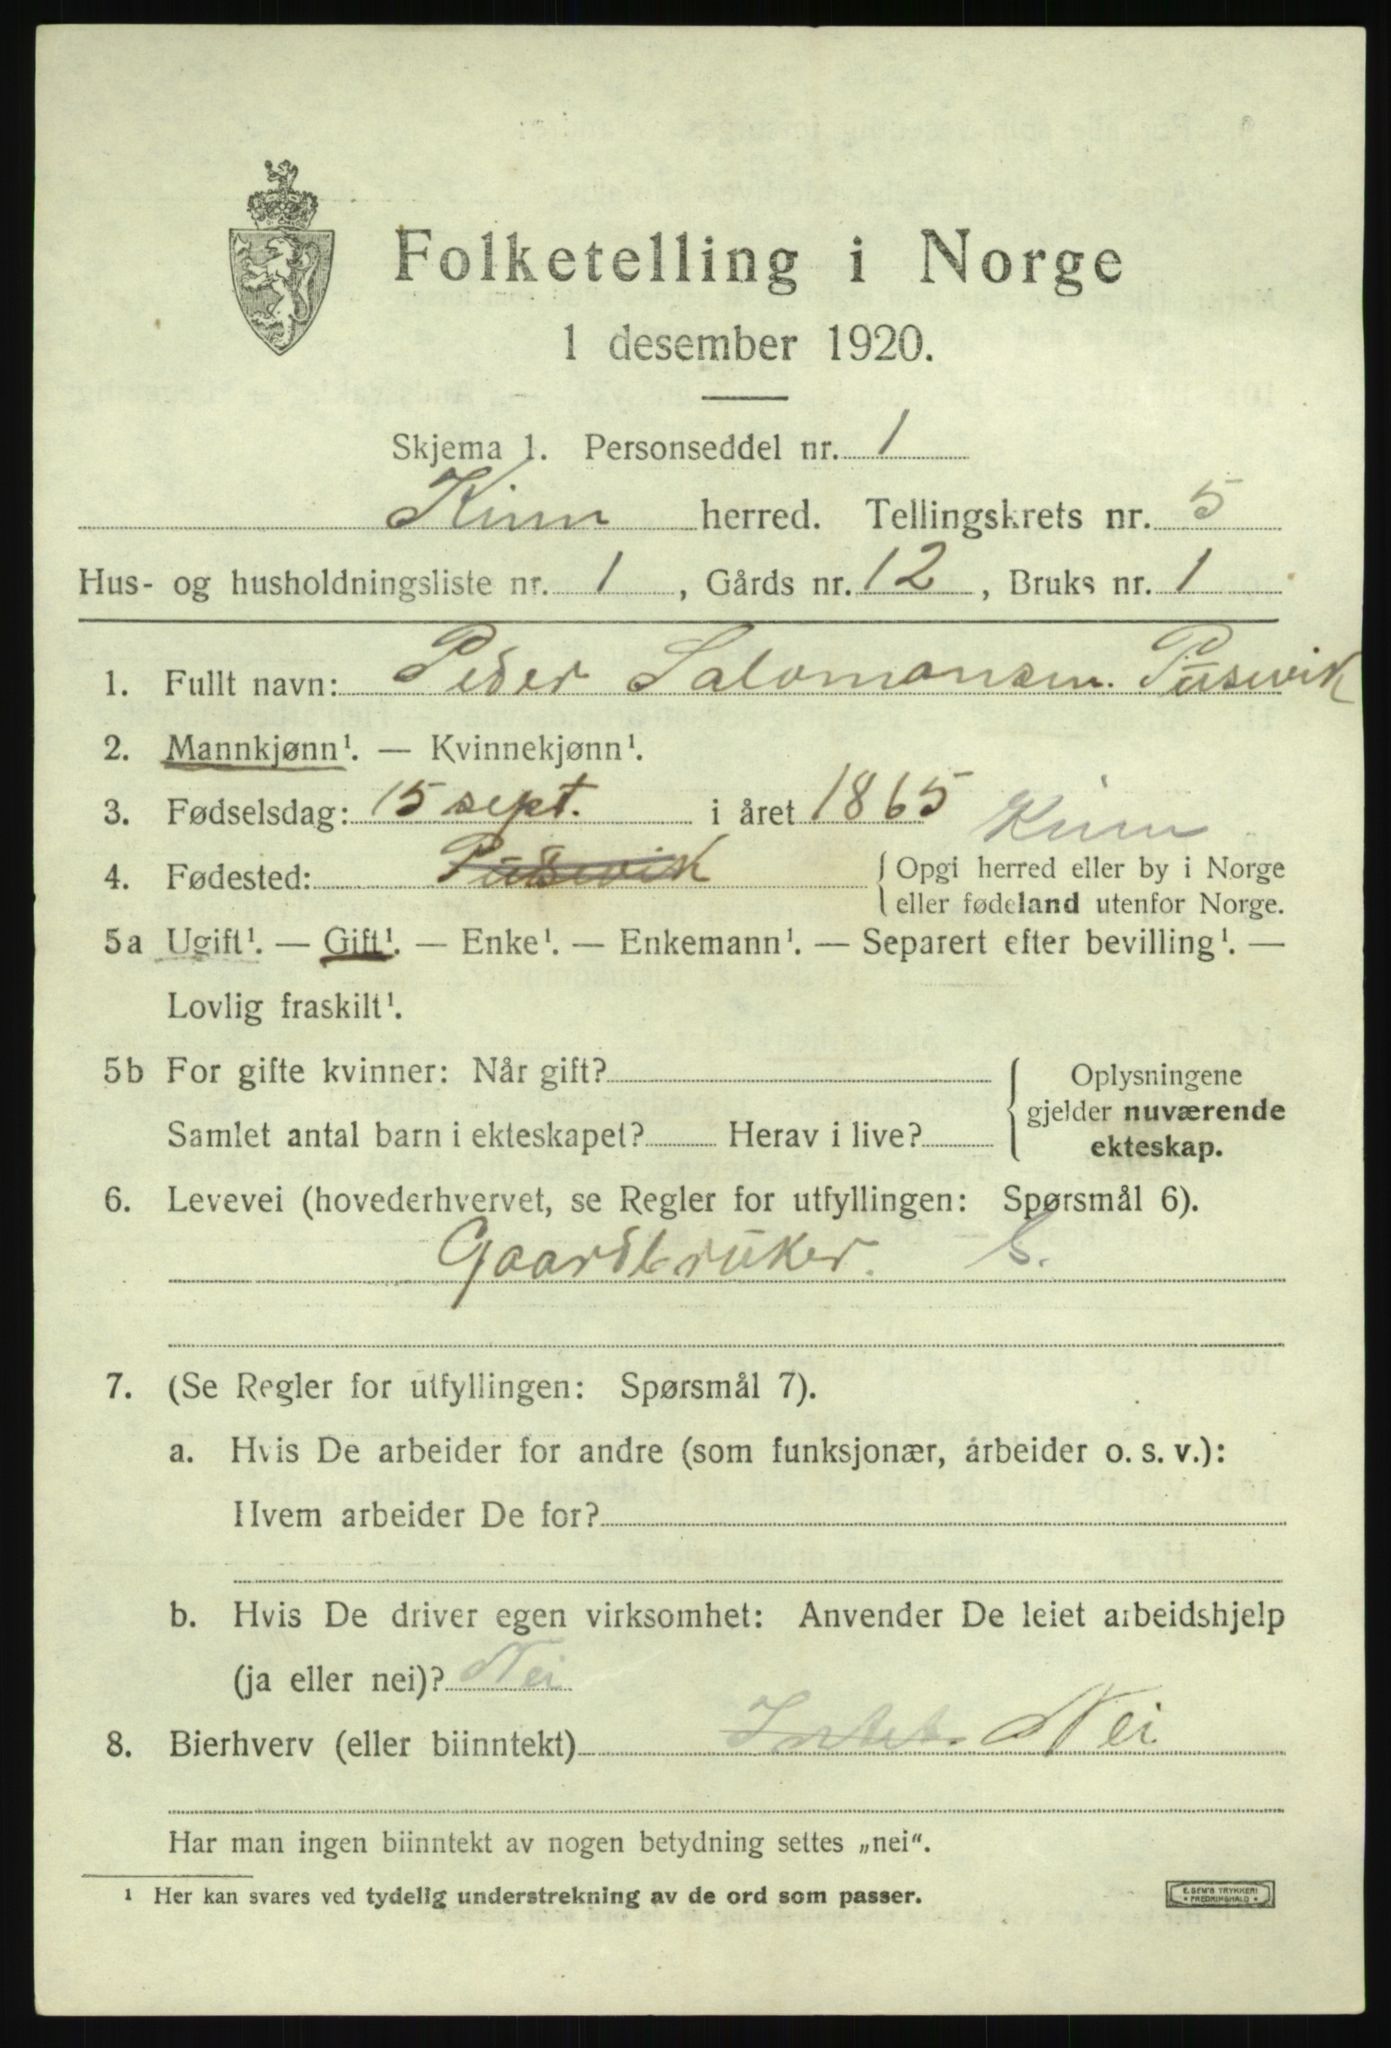 Folketelling i Norge
1 desember 1920.
Skjema 1. Personseddel nr. 1
Kinn herred. Tellingskrets nr. 5
Hus- og husholdningsliste nr. 1, Gårds nr. 12, Bruks nr. 1
1. Fullt navn: Peder Salomonsen Pusevik
2. Mannkjønn¹. — Kvinnekjønn¹.
3. Fødselsdag: 15 sept. i året 1865
Kinn
4. Fødested: Pusevik { Opgi herred eller by i Norge
eller fødeland utenfor Norge.
5a Ugift¹. — Gift¹. — Enke¹. — Enkemann¹. — Separert efter bevilling¹. —
Lovlig fraskilt¹.
5b For gifte kvinner: Når gift?
Samlet antal barn i ekteskapet? Herav i live?
Oplysningene
gjelder nuværende
ekteskap.
6. Levevei (hovederhvervet, se Regler for utfyllingen: Spørsmål 6).
Gaardbruker. S.
7. (Se Regler for utfyllingen: Spørsmål 7).
a. Hvis De arbeider for andre (som funksjonær, arbeider o. s. v.):
Hvem arbeider De for?
b. Hvis De driver egen virksomhet: Anvender De leiet arbeidshjelp
(ja eller nei)? Nei
8. Bierhverv (eller biinntekt) Intet. Nei
Har man ingen biinntekt av nogen betydning settes „nei“.
¹ Her kan svares ved tydelig understrekning av de ord som passer.
E. SEM'S TRYKKERI
FREDRIKSHALD